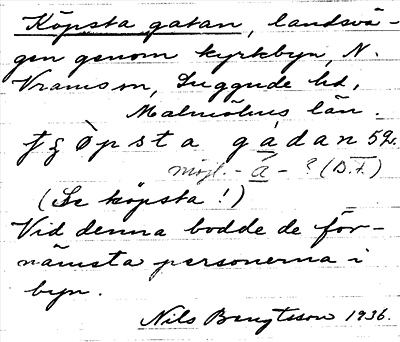 Köpsta gatan, landsvä-
gen genom kyrkbyn, N.
Vrams sn, Luggude hd,
Malmöhus län.
öpsta gadan 52.
möjl. - a - ? (D.F.)
(Se köpsta!)
Vid denna bodde de för-
nämsta personerna i
byn.
Nils Bengtsson 1936.